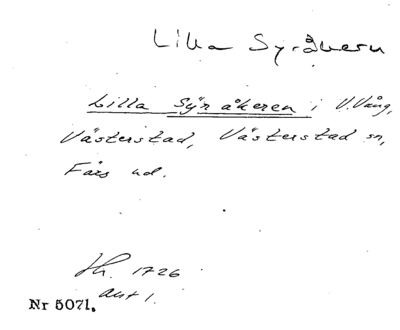 Lilla Syråkern
Lilla Syr åkeren i V. Vång,
Västerstad, Västerstad sn,
Färs hd.
Lh. 1726
akt 1.
Nr 5071.